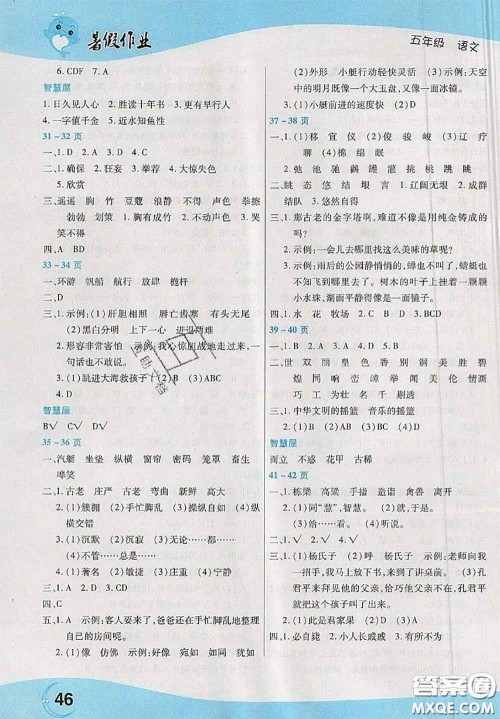 暑假作业
五年级 语文
6. CDF 7. A
智慧屋
1. 日久见人心 2. 胜读十年书 3. 日月如梭
4. 一字值千金 5. 近水知鱼性
31~32页
一、1. D 2. A 3. A
二、1. 确保 2. 狂妄 3. 举荐 4. 大惊失色
5. 欣赏
三、遥遥 胸 竹 豆蔻 不动声色 拳擦
勃勃 划策 1. 胸有成竹 2. 不动声色 3. 哭
笑不得
四、BD
33~34页
一、环游 帆船 航行 放肆 桅杆
二、D
三、1. 示例:(1)肝胆相照 唇亡齿寒 有头无尾
(2)黑白分明 上下一心 进退两难
2. 形容非常害怕 示例:我心惊胆战地走过来,一
句话也不敢说。
3. (1)跳进大海救孩子! (2)B (3)ABC
智慧屋
B√ C√
35~36页
一、汽艇 坐垫 纵横 窗帘 密码 笼罩 畜生
哗笑
二、1. 古老 庄严 古老 弯曲 新鲜 高大
2. (1)簇拥 (2)手忙脚乱 (3)操纵自如 (4)纵
横交错
3. (1)沉默 (2)沉寂 (3)无论……都……
(4)不管……总是……
4. (1)著名 (2)敏捷 (3)庄重 (4)宁静
三、D
四、C
五、1. 示例:客人要来了,爸爸还在手忙脚乱地整理
自己的房间呢。
2. (1)像 仿佛 示例:好像 犹如 宛如
(2)外形 小艇行动轻快灵活 (3)示例:天上的
明月仿佛像个大玉盘,湖面像一面冰镜。
3. (1)小艇前进的速度快 (2)D
37~38页
一、(1)移 宜 仪 (2)俊 骏 峻 (3)辽 疗
聊 (4)棉 绵 眠
二、弛 池 驰 鹂 罐 灌 桃 跳 眺
三、1. D 2. A 3. B 4. D
二、眺 态 悠 结 垠 言 1. 辽阔无垠 2. 成群
结队 3. 悠然自得
三、1. 那古老的金字塔啊,难道不是用纯金铸成的
吗?
2. 示例:一会儿去哪里找这么美味的草呢?
3. 示例:雨后的公园静悄悄的,蝴蝶、蜻蜓也不
知道去哪里玩了。树木的叶子上挂着一颗颗
小水珠,湖面平静得像一面镜子。
四、水 花 牧场
39~40页
二、世 双 丽 皇 色 香 别 洞 美 胜 史
煌 同 响 峦 嶂 举 闻 美 伦 情画
巧 工 为 天 无 划 表 页
三、中华文明的摇篮 音乐的摇篮
智慧屋
而立 不惑 花甲 古稀
41~42页
一、栋梁 高梁 手指 乃是 诣问 夫子
二、1. (1)同“慧”,智慧。 (2)看见。 (3)示,
给……看。 (4)听说。
2. B
三、1. (1)杨氏子 (2)呼 杨氏子 示例:老师向我
一招手,我马上跑来到了讲桌前。 (3)孔
君平来拜见他的父亲。恰巧他父亲不在家,
孔君平就把这个孩子叫了出来。
2. CD
四、1. 必自毙 2. 小人长戚戚 3. 有所不为
46
答案圈
MXQE.COM